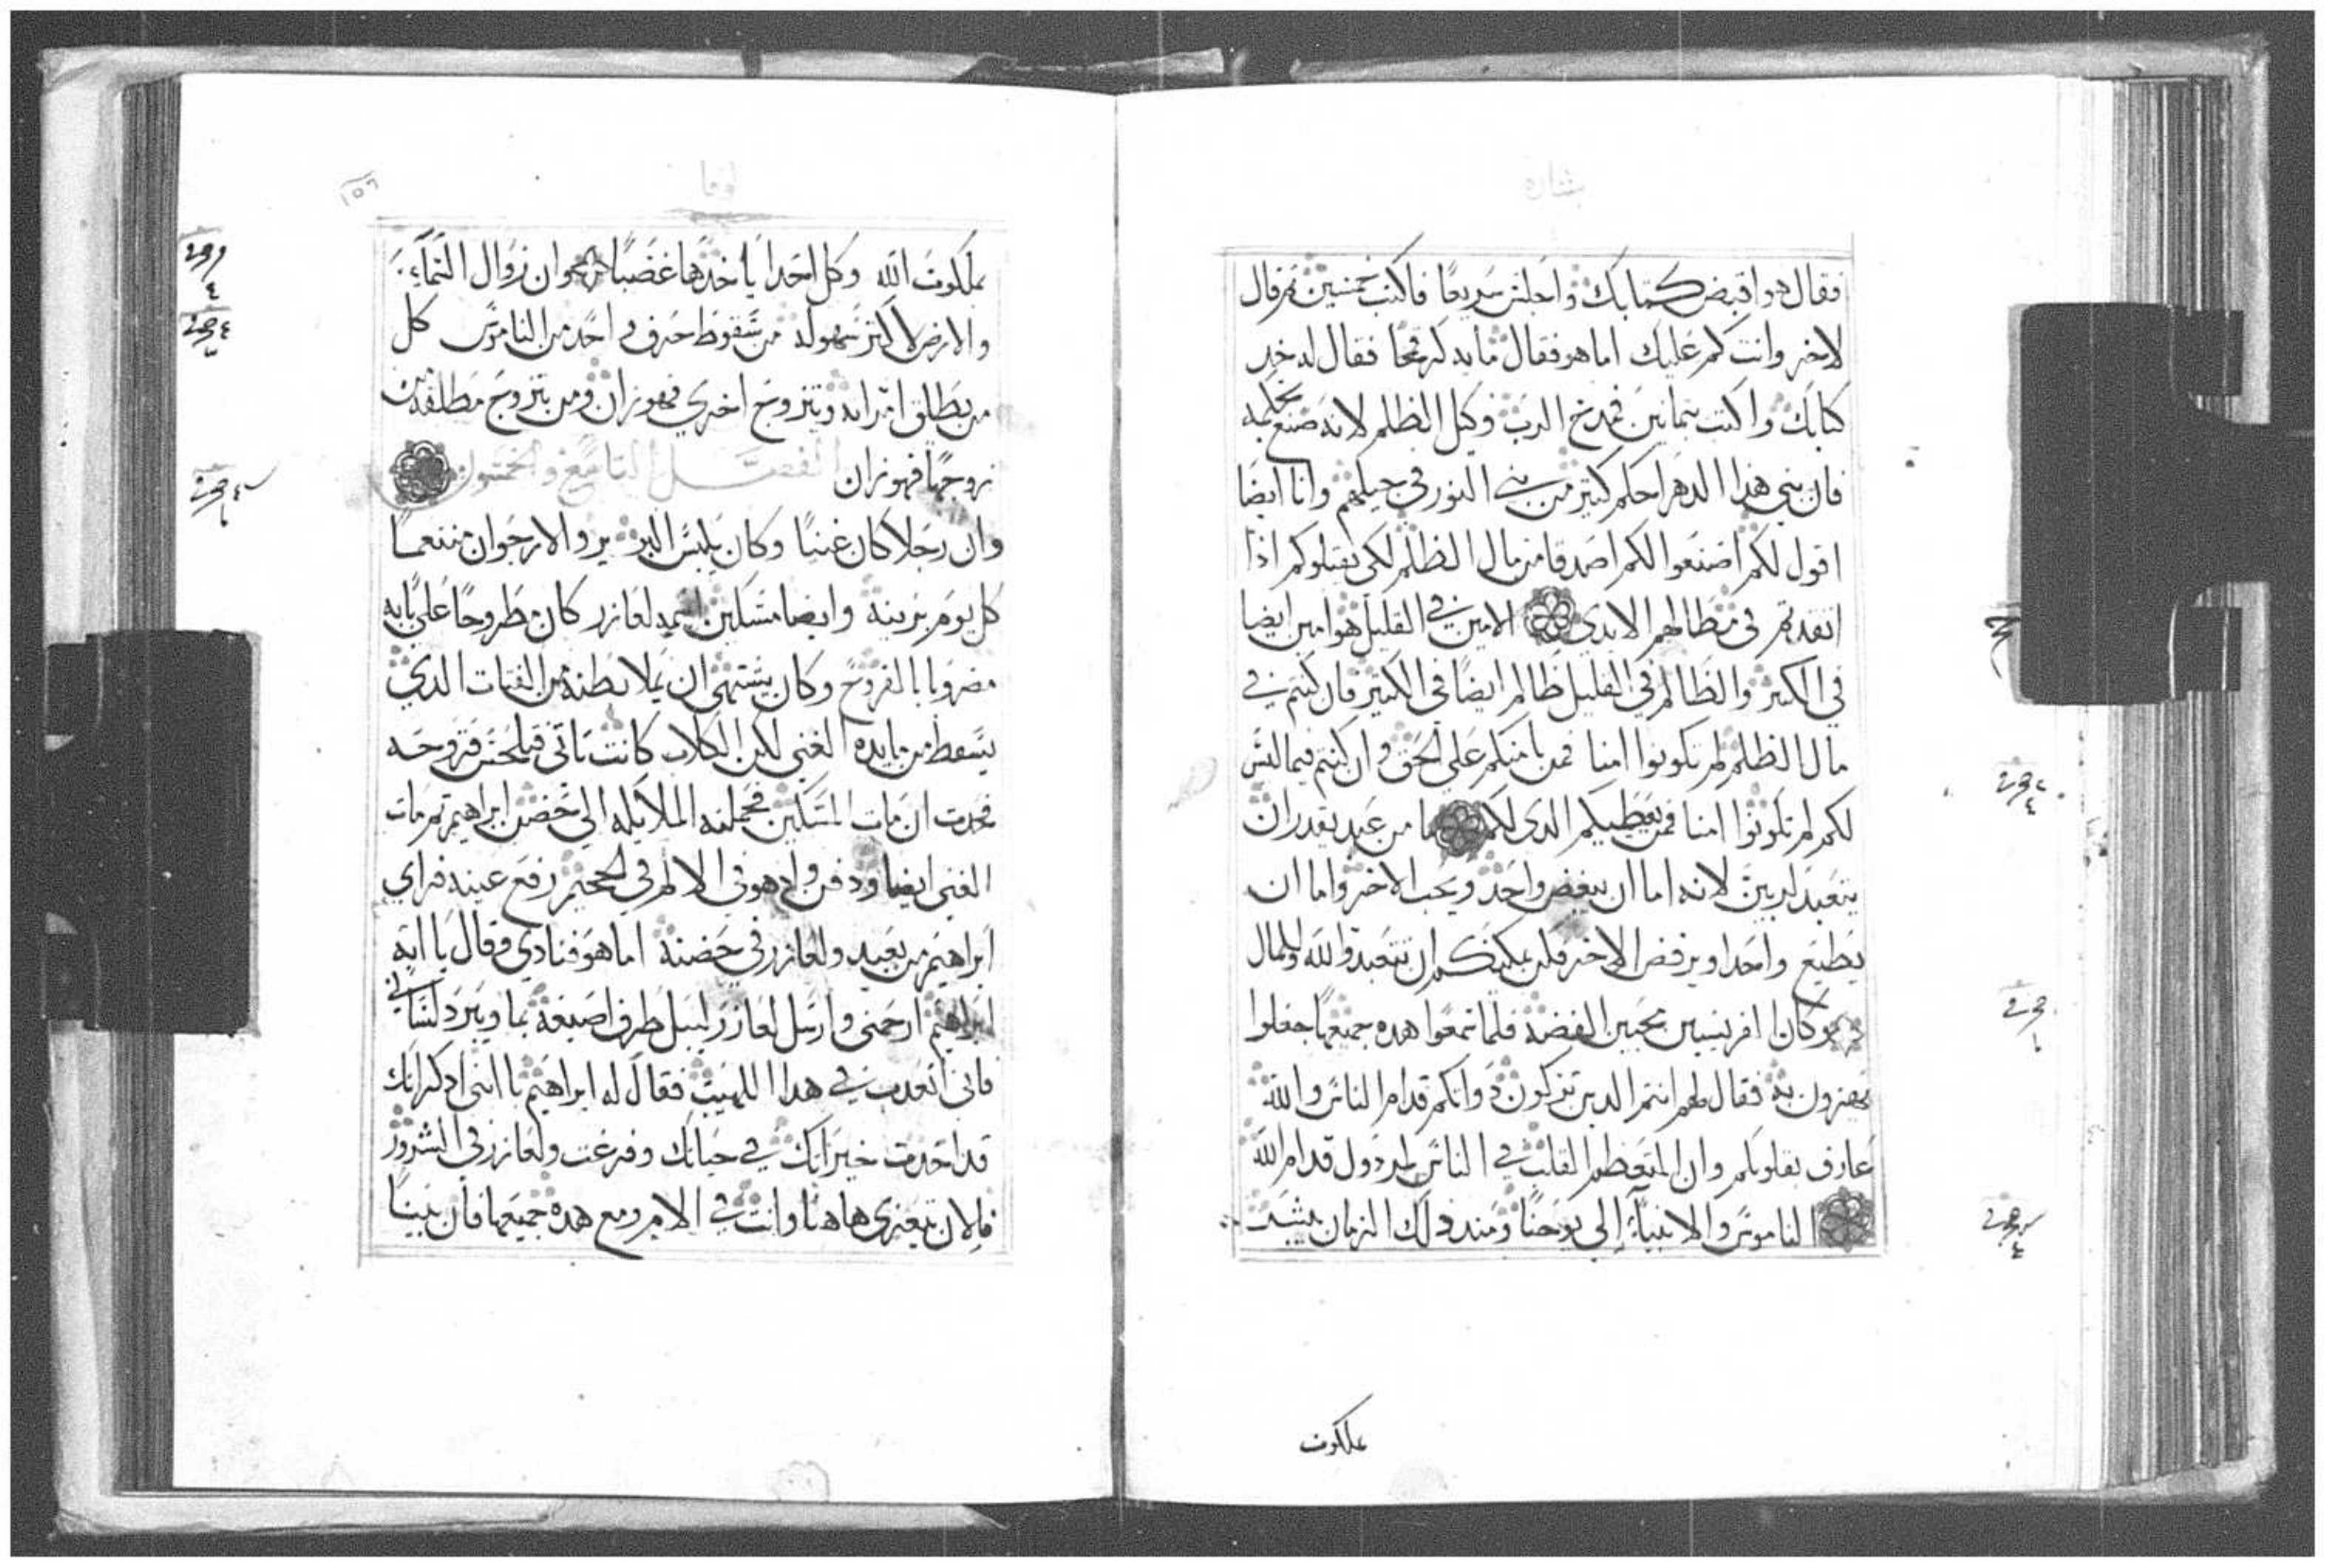 بشارة
فقال هو اقبض كتابك واجلس سريعا فاكتب خمسين ثم قال
لاخر وانت كم عليك اما هو فقال مايه كر قمحا فقال له خد
كتابك واكتب بثمانين فمدح الرب وكيل الظلم لانه صنع بحكمه
فان بني هذا الدهر احكم كثير من بني النور في جيلهم وانا ايضا
اقول لكم اصنعوا لكم اصدقا من مال الظلم لكي يقبلوكم اذا
انفدتم في مظالهم الابدي الامين في القليل هو امين ايضا
في الكثير والظالم في القليل ظالم ايضا في الكثير فان كنتم في
مال الظلم لم تكونوا امنا فمن يامنكم على الحق وان كنتم فيما ليس
لكم لم تكونوا امنا فمن يعطيكم الدي لكم ما من عبد يقدر ان
يتعبد لربين لانه اما ان يبغض واحد ويحب الاخر واما ان
يطيع واحدا ويرفض الاخر فلا يمكنكم ان تتعبدوا لله وللمال
وكان افريسيين محبين الفضه فلما سمعوا هده جميعها جعلوا
يهزون به فقال لهم انتم الدين تزكون دواتكم قدام الناس والله
عارف بقلوبكم وان المتعظم القلب في الناس مردول قدام الله
الناموس والانبياء الى يوحنا ومند دلك الزمان يبشر
بملكوت
لوقا
١٥٦
بملكوت الله وكل احدا ياخدها غضبا وان زوال السماء
والارض لاكثر سهوله من سقوط حرف واحد من الناموس كل
من يطلق امراته ويتزوج اخرى فهو زان ومن يتزوج مطلقه من
زوجها فهو زان الفصل التاسع والخمسون
وان رجلا كان غنيا وكان يلبس البرفير والارجوان متنعما
كل يوم بزينه وايضا مسكين اسمه لعازر كان مطروحا على بابه
مضروبا بالقروح وكان يشتهي ان يملا بطنه من الفتات الدي
يسقط من مايده الغني لكن الكلاب كانت تاتي فيلحس قروحه
فحدث ان مات المسكين فحملته الملايكه الى حضن ابراهيم ثم مات
الغني ايضا ودفن واد هو في الالم في الجحيم رفع عينه فراى
ابراهيم من بعيد ولعازر في حضنه اما هو فنادى وقال يا ابه
ابراهيم ارحمني وارسل لعازر ليبل طرف اصبعه بما ويبرد لساني
فاني اتعدب في هدا اللهيب فقال له ابراهيم يا ابني ادكر انك
قد اخدت خيراتك في حياتك وفرغت ولعازر في الشرور
فالان يتعزى هاهنا وانت في الالم ومع هده جميعها فان بينا